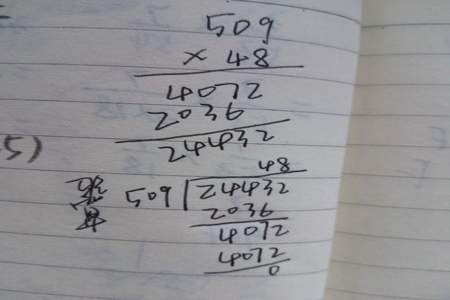 509
× 48
4072
2036
24432
(5)
48
509 24432
2036
4072
4072
0